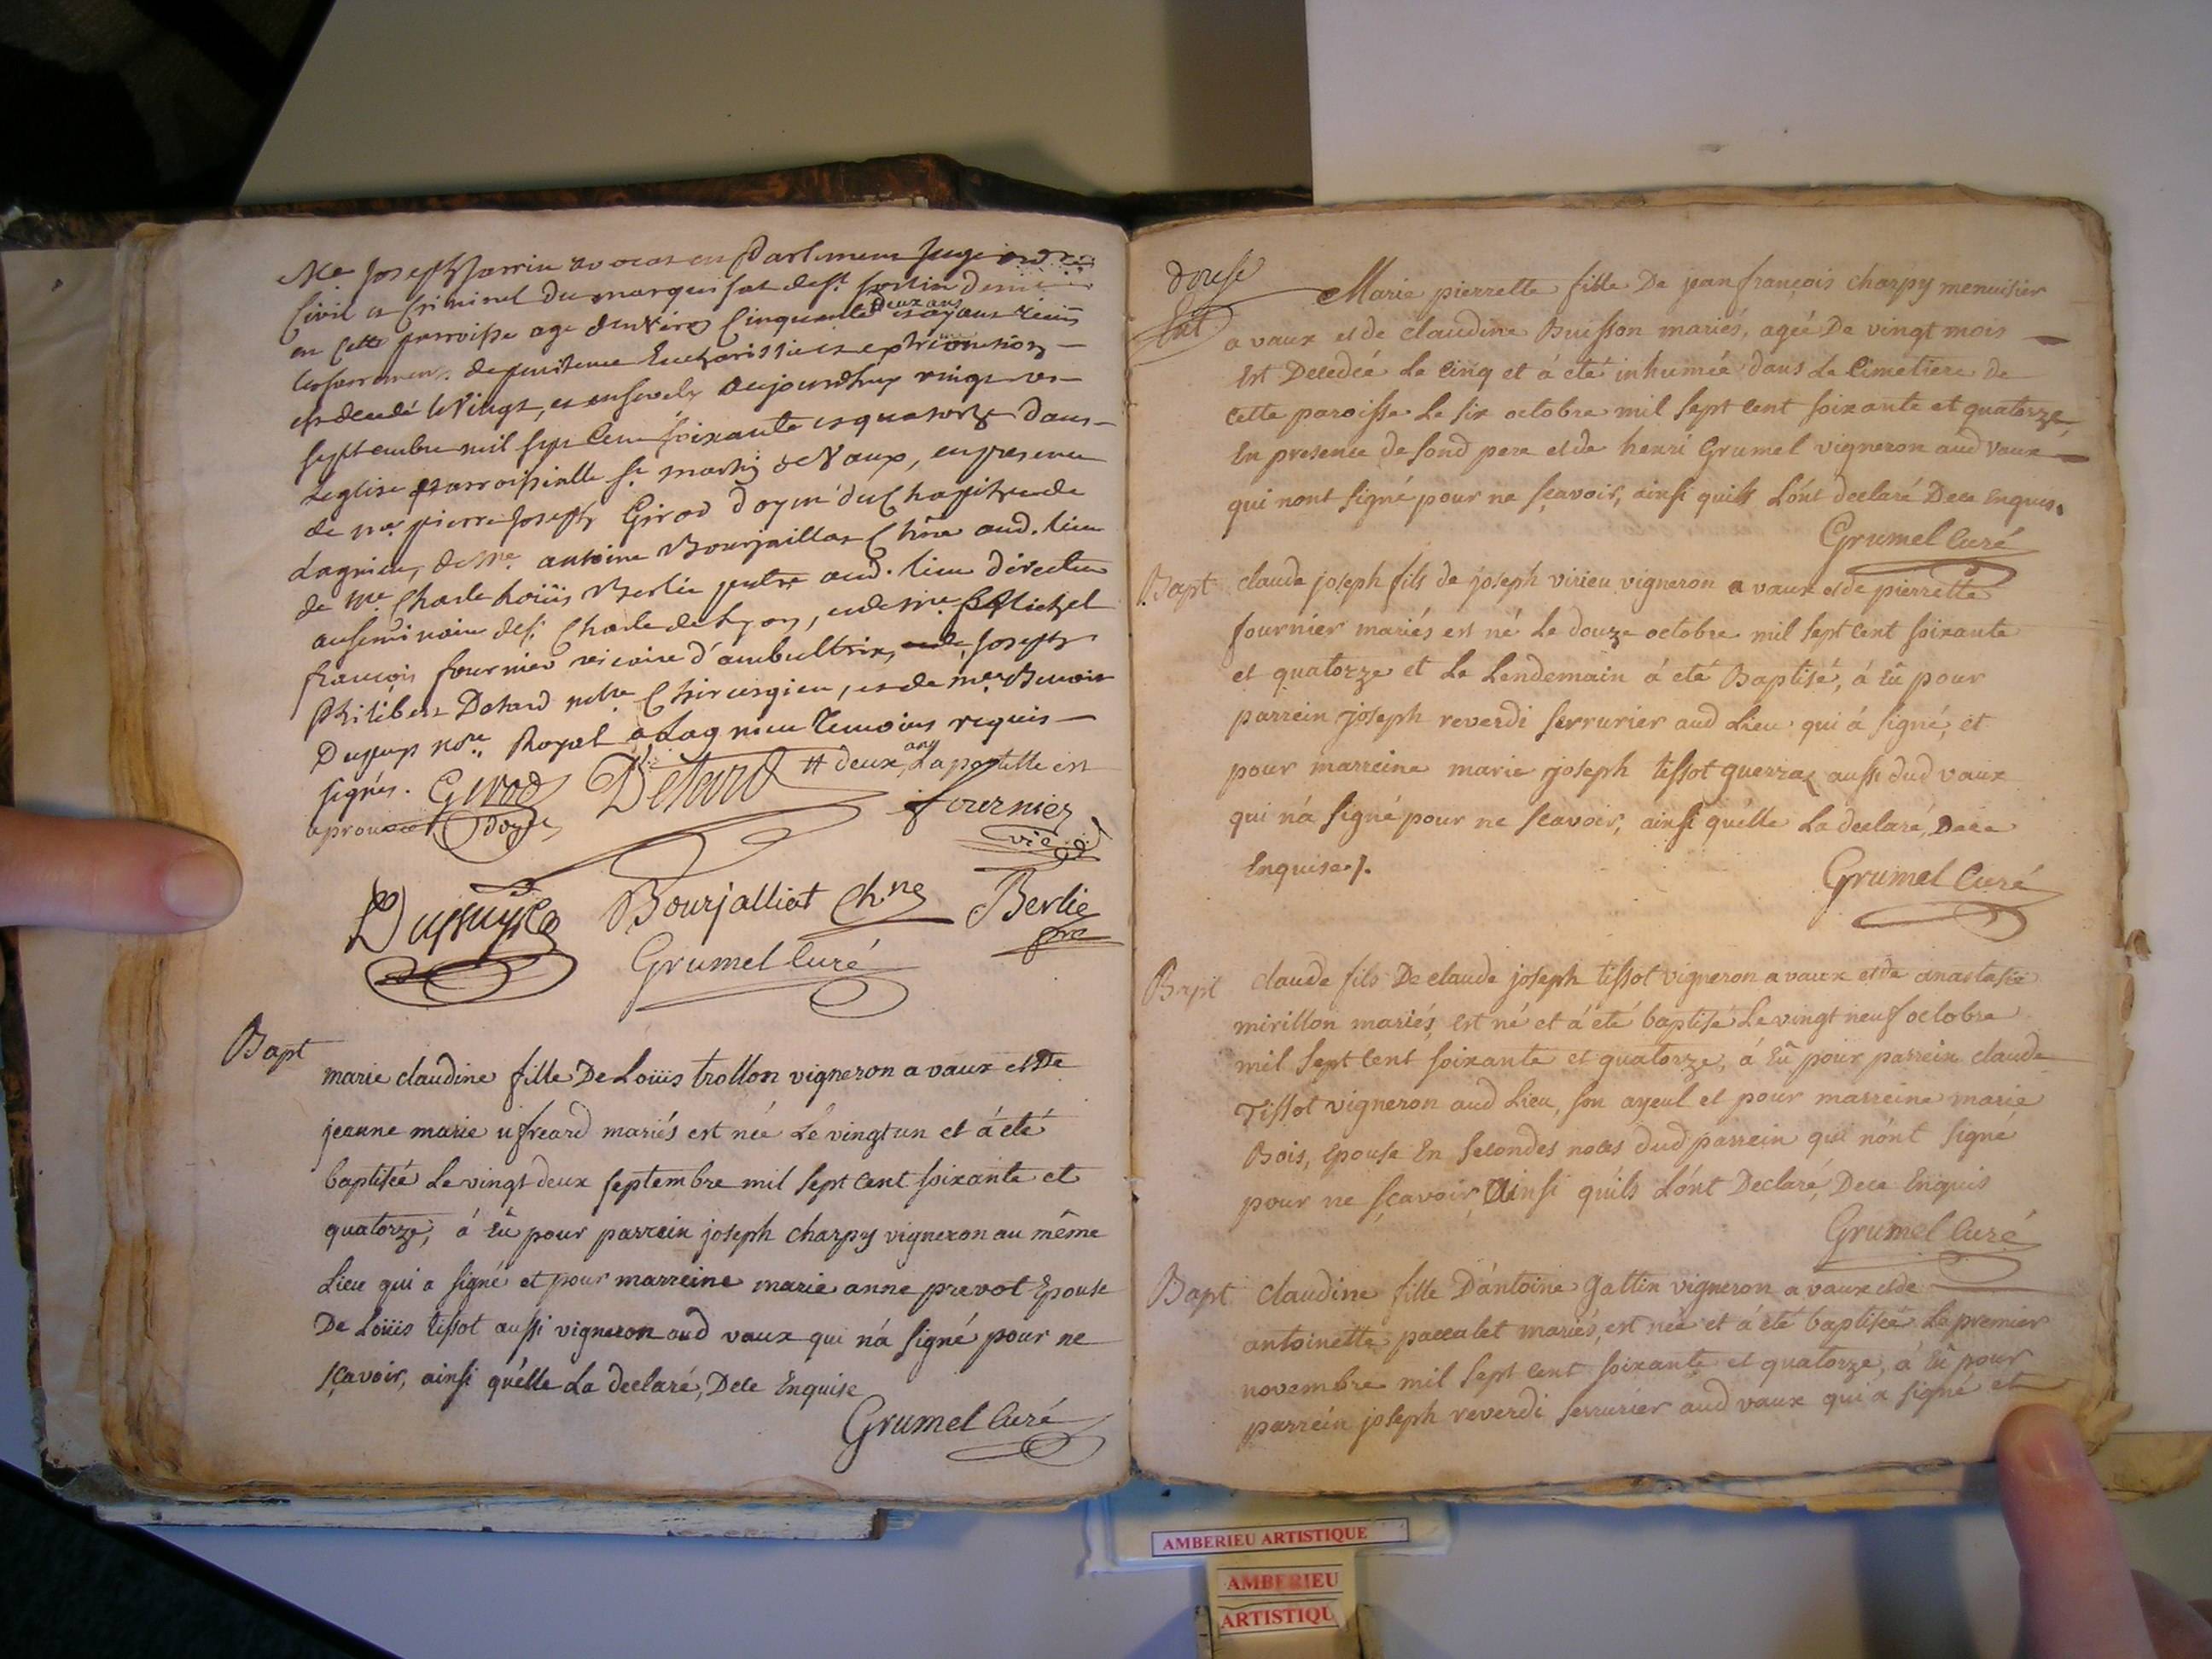 Me Joseph Jarrin avocat en Parlement Juge
Civil et Criminel du marquisat de St Sorlin
en cette parroisse age d'environ Cinquante # et ayant
deux ans
de penitence Eucharistie et extreme onction
est decedé le vingt, et ensevely aujourdhuy vingt
septembre mil sept cent soixante et quatorze dans
L'eglise parroissialle St martin de Vaux, en presence
de me pierre Joseph Girod doyen du Chapitre de
Lagnieu, de Me antoine Bourjaillat Chne aud. lieu
de Me Charle Loüis Berlie pretre aud. lieu directeur
au seminaire de St Charle de Lyon, et de Me Michel
françois fournier vicaire d'ambutrix, Joseph
Philibert Detard me Chirurgien, et de me Benoit
Dupuys nore Royal a Lagnieu temoins requis
signés. Girod Detard # deux ans La postille est
aprouvée doyen fournier
vic
Dupuys Bourjalliat Chne Berlie
ptre
Grumel Curé
Bapt
marie claudine fille De Loüis trollon vigneron a vaux et De
jeanne marie ufreard mariés est née Le vingt un et á eté
baptiséé Le vingt deux septembre mil sept cent soixante et
quatorze, á Eû pour parrein joseph charpy vigneron au même
Lieu qui a signé et pour marreine marie anne prevot Epouse
De Loüis tissot aussi vigneron aud vaux qui n'a signé pour ne
sçavoir, ainsi qu'elle La declaré, Dece Enquise
Grumel Curé
douse
Ent. Marie pierrette fille De jean françois charpy menuisier
a vaux et de claudine Buisson mariés, agéé De vingt mois
Est Decedéé Le Cinq et á eté inhuméé dans Le Cimetiere de
cette paroisse Le six octobre mil sept cent soixante et quatorze,
En presence de sond pere et de henri Grumel vigneron aud Vaux
qui nont signé pour ne sçavoir, ainsi quils L'ónt declaré Dece Enquis.
Grumel Curé
Bapt claude joseph fils de joseph virieu vigneron a vaux et de pierrette
fournier mariés est né Le douze octobre mil sept cent soixante
et quatorze et Le Lendemain á eté Baptisé, á Eû pour
parrein joseph reverdi serrurier aud Lieu qui á signé, et
pour marreine marie joseph tissot guerraz aussi dud vaux
qui n'á signé pour ne sçavoir, ainsi qu'elle La declaré, Dece
Enquise.
Grumel Curé
Bapt claude fils De claude joseph tissot vigneron a vaux et de anastasie
mirillon mariés, est né et á eté baptisé Le vingt neuf octobre
mil sept cent soixante et quatorze, á Eû pour parrein claude
Tissot vigneron aud Lieu, son ayeul et pour marreine marie
Bois, Epouse En secondes noces dud parrein qui n'ónt signé
pour ne sçavoir, Ainsi qu'ils L'ónt Declaré, Dece Enquis
Grumel Curé
Bapt claudine fille D'antoine Gattin vigneron a vaux et de
antoinette paccalet mariés, est néé et á eté baptiséé Le premier
novembre mil sept cent soixante et quatorze, á Eû pour
parrein joseph reverdi serrurier aud vaux qui a signé et
AMBERIEU ARTISTIQUE
AMBERIEU
ARTISTIQU